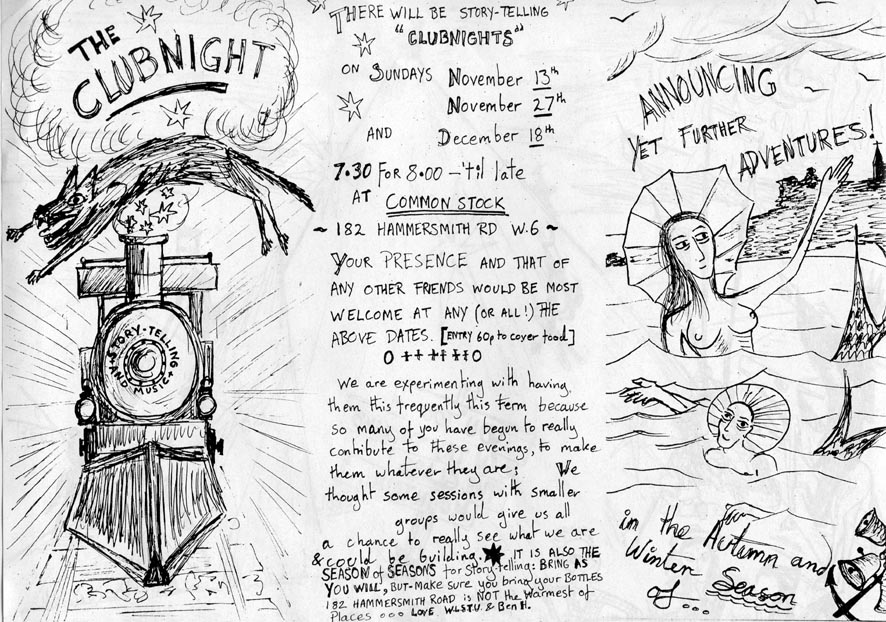 THE
CLUBNIGHT
STORY-TELLING
AND MUSIC
THERE WILL BE STORY-TELLING
"CLUBNIGHTS"
ON SUNDAYS November 13th
November 27th
AND December 18th
7.30 FOR 8.00 – 'til late
AT COMMON STOCK
~ 182 HAMMERSMITH RD W.6 ~
YOUR PRESENCE AND THAT OF
ANY OTHER FRIENDS WOULD BE MOST
WELCOME AT ANY (OR ALL!) THE
ABOVE DATES. [ENTRY 60p to cover food]
We are experimenting with having,
them this frequently this term because
so many of you have begun to really
contribute to these evenings, to make
them whatever they are; We
thought some sessions with smaller
groups would give us all
a chance to really see what we are
& could be building. IT IS ALSO THE
SEASON of SEASONS for Story telling: BRING AS
YOU WILL, BUT-MAKE sure you bring your BOTTLES
182 HAMMERSMITH ROAD is NOT the Warmest of
Places ooo LOVE W.L.ST.U. & Ben H.
ANNOUNCING
YET FURTHER
ADVENTURES!
in the Autumn and
Winter Season
of...